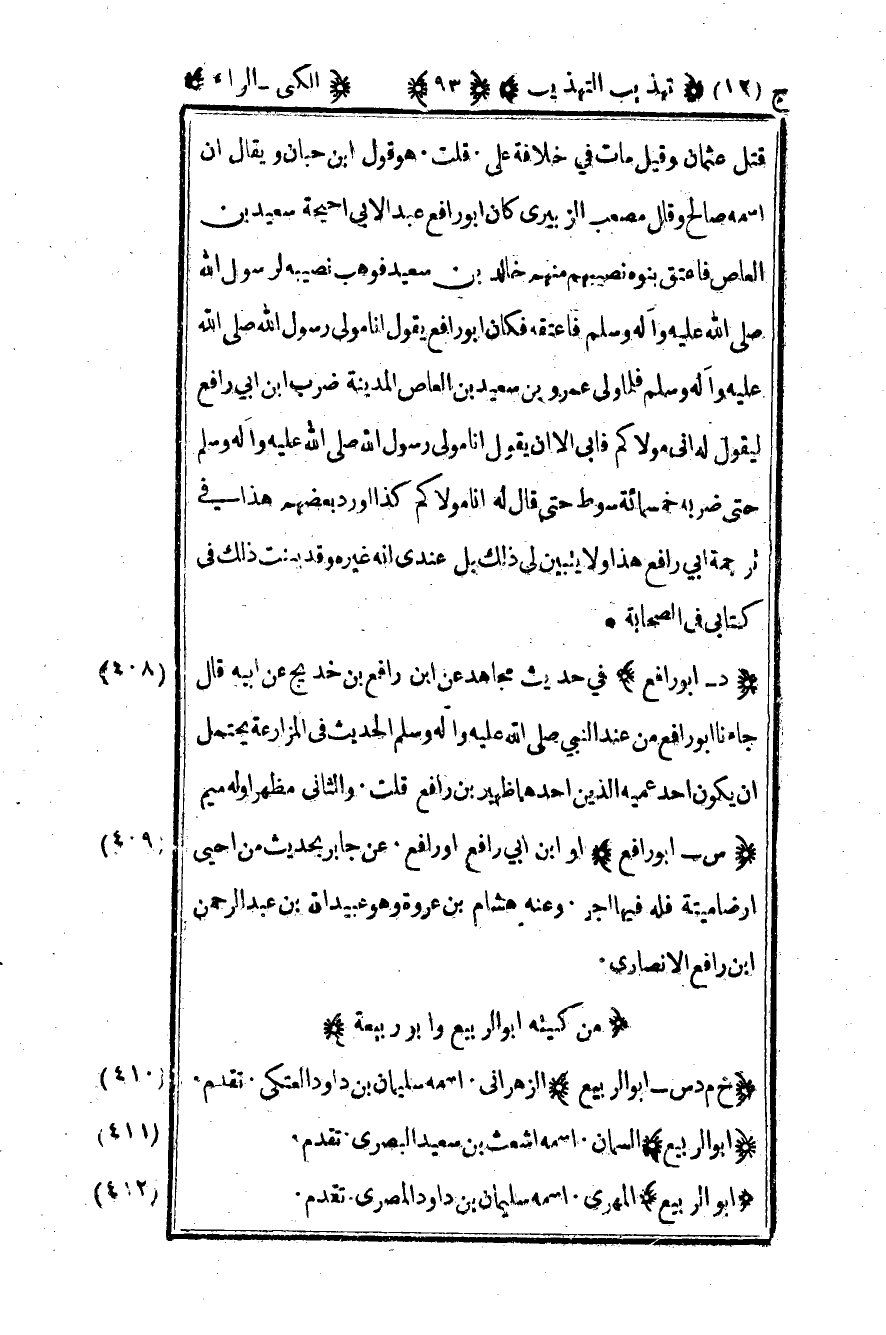 ج (١٢) ﴿ تهذيب التهذيب ﴾ ﴿ ٩٣ ﴾ ﴿ الكنى - الراء ﴾
قتل عثمان وقيل مات في خلافة على · قلت · هو قول ابن حبان ويقال ان
اسمه صالح وقال مصعب الزبيرى كان ابو رافع عبد الابي احيحة سعيد بن
العاص فاعتق بنوه نصيبهم منهم خالد بن سعيد فوهب نصيبه لرسول الله
صلى الله عليه وآله وسلم فاعتقه فكان ابو رافع يقول انا مولى رسول الله صلى الله
عليه وآله وسلم فلما ولى عمرو بن سعيد بن العاص المدينة ضرب ابن ابي رافع
ليقول له انى مولاكم فابى الا ان يقول انا مولى رسول الله صلى الله عليه وآله وسلم
حتى ضربه خمسمائة سوط حتى قال له انا مولاكم كذا اورد بعضهم هذا في
ترجمة ابي رافع هذا ولا يتبين لى ذلك بل عندى انه غيره وقد بينت ذلك فى
كتابى فى الصحابة •
﴿ د - ابو رافع ﴾ في حديث مجاهد عن ابن رافع بن خديج عن ابيه قال (٤٠٨)
جاءنا ابو رافع من عند النبي صلى الله عليه وآله وسلم الحديث فى المزارعة يحتمل
ان يكون احد عميه الذين احدهما ظهير بن رافع قلت · والثانى مظهر اوله ميم
﴿ س - ابو رافع ﴾ او ابن ابي رافع او رافع · عن جابر بحديث من احيى (٤٠٩)
ارضا ميتة فله فيها اجر · وعنه هشام بن عروة وهو عبيد الله بن عبد الرحمن
ابن رافع الانصارى ·
﴿ من كنيته ابو الربيع وابو ربيعة ﴾
﴿ خ م د س - ابو الربيع ﴾ الزهرانى · اسمه سليمان بن داود العتكى · تقدم · (٤١٠)
﴿ ابو الربيع ﴾ السمان · اسمه اشعث بن سعيد البصرى · تقدم · (٤١١)
﴿ ابو الربيع ﴾ المهرى · اسمه سليمان بن داود المصرى · تقدم · (٤١٢)